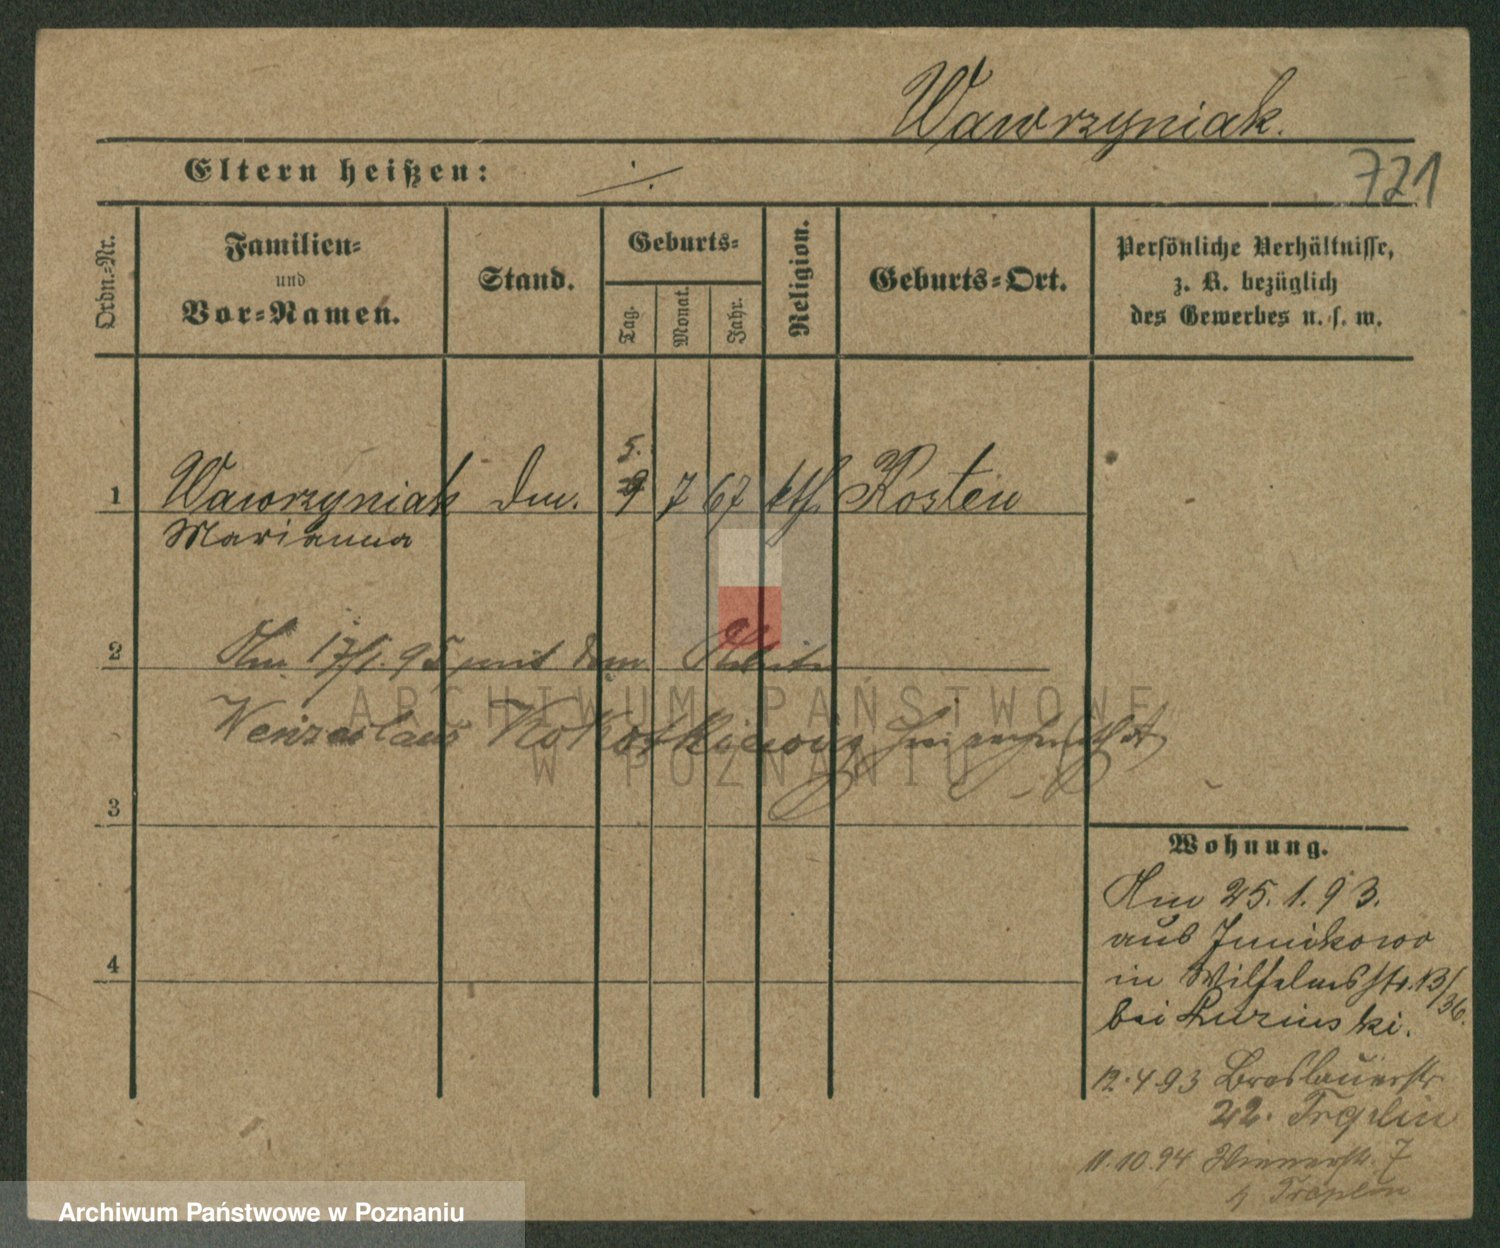 Wawrzyniak.
Eltern heißen: ./.
721
Ordn.-Nr.
Familien-
und
Vor-Namen.
Stand.
Geburts-
Tag.
Monat.
Jahr.
Religion.
Geburts-Ort.
Persönliche Verhältnisse,
z. B. bezüglich
des Gewerbes u. s. w.
5.
1 Wawrzyniak 9 7 67 kth. Kosten
Marianna
2 Am 17/1. 95 mit dem
Wenzeslaus
3
Wohnung.
Am 25. 1. 93.
aus Junikowo
in Wilhelmsstr. 13/36.
bei
4
12.4.93 Breslauerstr
22.
11.10.94 Wienerstr. 7
ARCHIWUM PAŃSTWOWE
W POZNANIU
Archiwum Państwowe w Poznaniu